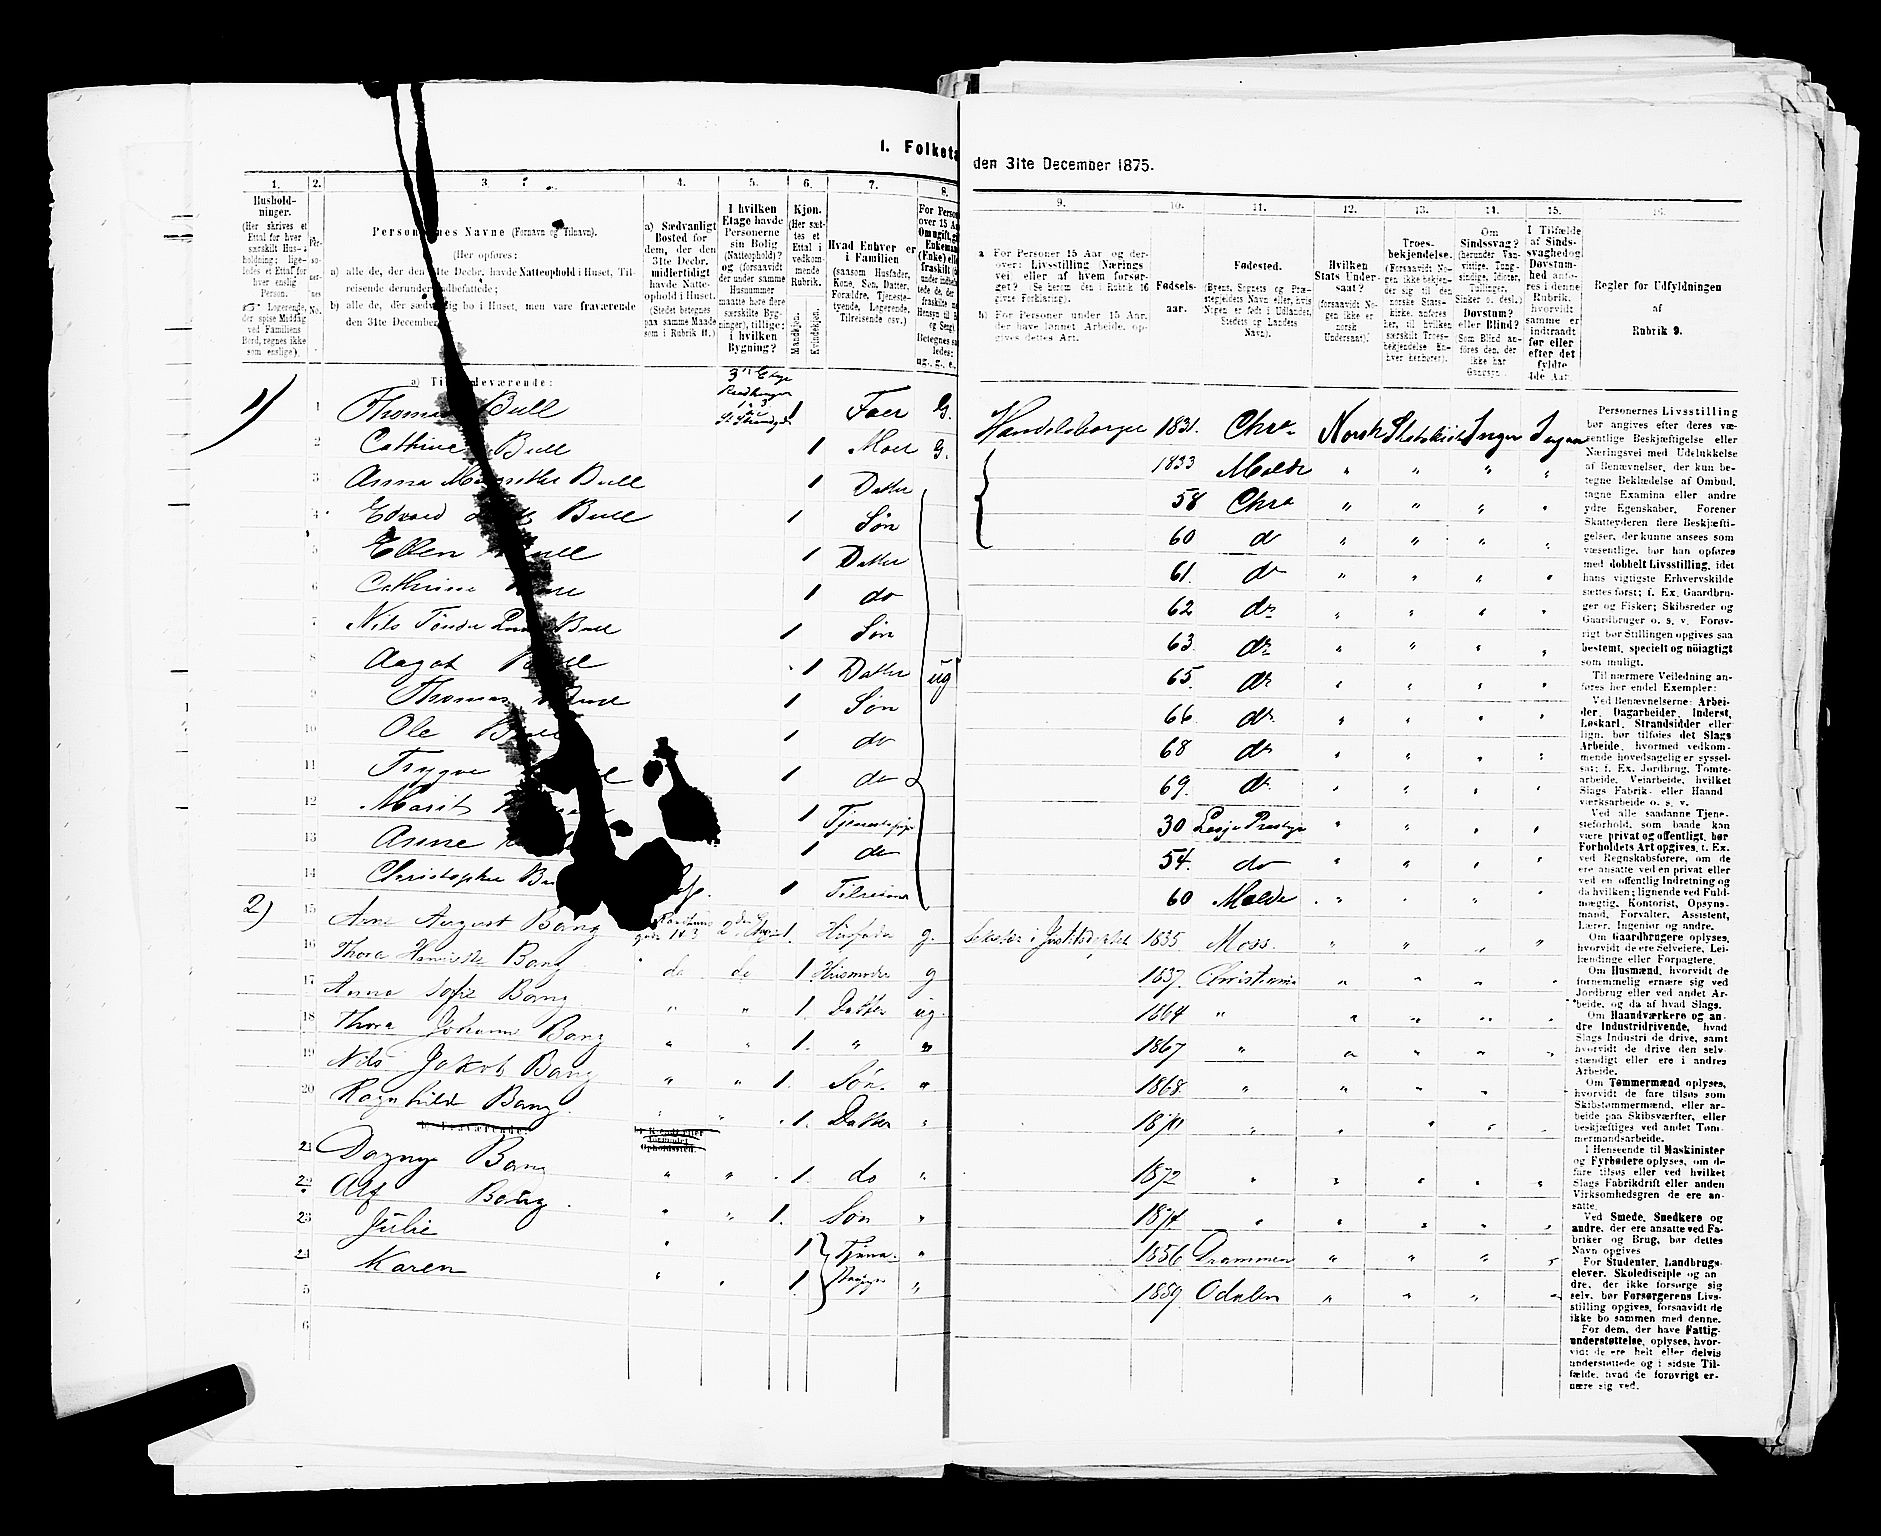 1. Folketæ
den 31te December 1875.
1. 2. 3. 4. 5. 6. 7. 8. 9. 10. 11. 12. 13. 14. 15. 16.
Hushold-
ninger.
(Her skrives et
Ettal for hver
særskilt Hus-
holdning; lige-
ledes et Ettal for
hver enslig
Person.
Logerende,
der spise Middag
ved Familiens
Bord, regnes ikke
som enslige).
Personernes Navne (Fornavn og Tilnavn).
(Her opføres:
a) alle de, der den 31te Decbr. havde Natteophold i Huset, Til-
reisende derunder indbefattede;
b) alle de, der sædvanlig bo i Huset, men vare fraværende
den 31te December.
a) Sædvanligt
Bosted for
dem, der den
31te Decbr.
midlertidigt
havde Natte-
ophold i Huset.
(Stedet betegnes
paa samme Maade
som i Rubrik 11.)
I hvilken
Etage havde
Personerne
sin Bolig
(Natteophold)?
og (forsaavidt
der under samme
Husnummer
maatte høre flere
særskilte Byg-
ninger), tillige:
i hvilken
Bygning?
Kjøn.
(Her sæt-
tes et
Ettal i
vedkom-
mende
Rubrik.
Mandkjøn.
Kvindekjøn.
Hvad Enhver er
i Familien
(saasom Husfader,
Kone, Søn, Datter,
Forældre, Tjeneste-
tyende, Logerende,
Tilreisende osv.)
a For Personer 15 Aar og der-
over: Livsstilling (Nærings
vei eller af hvem forsør-
get? (Se herom den i Rubrik 16
givne Forklaring).
b) For Personer under 15 Aar,
der have lønnet Arbeide, op-
gives dettes Art.
Fødsels-
aar.
Fødested.
(Byens, Sognets og Præ-
stegjeldets Navn eller, hvis
Nogen er født i Udlandet,
Stedets og Landets
Navn).
Hvilken
Stats Under-
saat?
(forsaavidt No-
gen ikke er
norsk
Undersaat).
Troes-
bekjendelse.
(Forsaavidt No-
gen ikke bekjen-
der sig til den
norske Stats-
kirke, anføres
her, til hvilken
særskilt Troes-
bekjendelse En-
hver henhører).
Om
Sindssvag?
(herunder Van-
vittige, Tung-
sindige, Idioter,
Tullinger,
Sinker o. desl.)
Døvstum?
eller Blind?
Som Blind an-
føres den, der
ikke har
Gangsyn.
I Tilfælde
af Sinds-
svaghed og
Døvstum-
hed anfø-
res i denne
Rubrik,
hvorvidt
samme er
indtraadt
før eller
efter det
fyldte
4de Aar.
Regler for Udfyldningen
af
Rubrik 9.
1) 1 Thomas Bull 1 Faer G. Handelsborger 1831. Chra Norsk Ingen Ingen
2 Cathrine Bull 1 Moer G. 1833 Molde " " " "
3 Anna Bull 1 Datter 58 Chra " " " "
4 Edvard Bull 1 Søn 60 do " " " "
5 Ellen Bull 1 Datter 61. do " " " "
6 Cathrine 1 do 62 do " " " "
7 Nils Bull 1 Søn 63 do " " " "
8 Aagot 1 Datter ug 65. do " " " "
9 Thomas 1 Søn 66 do " " " "
10 Ole 1 do 68 do " " " "
11 Trygve 1 do 69. do " " " "
12 Marit 1 30 " " " "
13 Anne 1 do 54. do " " " "
14 Christopher 1 60 Molde " " "
2) 15 Arne August Bang 1. Husfader g. 1835 Moss. " " " "
16 Thora Henriette Bang do do 1. Husmoder g 1837. Christiania " " " "
17 Anna Sofie Bang " " 1. Datter ug. 1864 " " " " "
18 Thora Johanne Bang " " 1. " " 1867 " " " " "
19 Nils Jakob Bang " " 1. Søn. " 1868 " " " " "
20 Ragnhild Bang. " " 1. Datter " " " " " "
21 Dagny Bang " " 1. do " 1872 " " " " "
22 Alf Bang. " " 1. Søn " 1874 " " " " "
23 Julie " 1 " 1856 Drammen " " " "
24 Karen " " 1. " 1859. Odalen " " " "
5
6
Personernes Livsstilling
bør angives efter deres væ-
sentlige Beskjæftigelse eller
Næringsvei med Udelukkelse
af Benævnelser, der kun be-
tegne Beklædelse af Ombud,
tagne Examina eller andre
ydre Egenskaber. Forener
Skatteyderen flere Beskjæfti-
gelser, der kunne ansees som
væsentlige, bør han opføres
med dobbelt Livsstilling, idet
hans vigtigste Erhvervskilde
sættes først; f. Ex. Gaardbru-
ger og Fisker; Skibsreder og
Gaardbruger o. s. v. Forøv-
rigt bør Stillingen opgives saa
bestemt, specielt og nöiagtigt
som muligt.
Til nærmere Veiledning an-
føres her endel Exempler:
Ved Benævnelserne: Arbei-
der, Dagarbeider, Inderst,
Løskarl, Strandsidder eller
lign. bør tilføies det Slags
Arbeide, hvormed vedkom-
mende hovedsagelig er syssel-
sat; f. Ex. Jordbrug, Tomte-
arbeide, Veiarbeide, hvilket
Slags Fabrik- eller Haand
værksarbeide o. s. v.
Ved alle saadanne Tjene-
steforhold, som baade kan
være privat og offentligt, bør
Forholdets Art opgives, f. Ex.
ved Regnskabsførere, om de
ere ansatte ved en privat eller
ved en offentlig Indretning og
da hvilken; lignende ved Fuld-
mægtig, Kontorist, Opsyns-
mand, Forvalter, Assistent,
Lærer, Ingeniør og andre.
Om Gaardbrugere oplyses,
hvorvidt de ere Selveiere, Lei-
lændinge eller Forpagtere.
Om Husmænd, hvorvidt de
fornemmelig ernære sig ved
Jordbrug eller ved andet Ar-
beide, og da af hvad Slags.
Om Haandværkere og an-
dre Industridrivende, hvad
Slags Industri de drive, samt
hvorvidt de drive den selv-
stændigt eller ere i andres
Arbeide.
Om Tømmermænd oplyses,
hvorvidt de fare tilsøs som
Skibstømmermænd, eller ar-
beide paa Skibsværfter, eller
beskjæftiges ved andet Tøm-
mermandsarbeide.
I Henseende til Maskinister
og Fyrbødere oplyses, om de
fare tilsøs eller ved hvilket
Slags Fabrikdrift eller anden
Virksomhedsgren de ere an-
satte.
Ved Smede, Snedkere og
andre, der ere ansatte ved Fa-
briker og Brug, bør dettes
Navn opgives
For Studenter, Landbrugs-
elever, Skoledisciple og an
dre, der ikke forsørge sig
selv, bør Forsørgerens Livs-
stilling opgives, forsaavidt de
ikke bo sammen med denne.
For dem, der have Fattig-
understøttelse, oplyses, hvor-
vidt de ere helt eller delvis
understøttede og i sidste Til-
fælde, hvad de forøvrigt er-
nære sig ved.